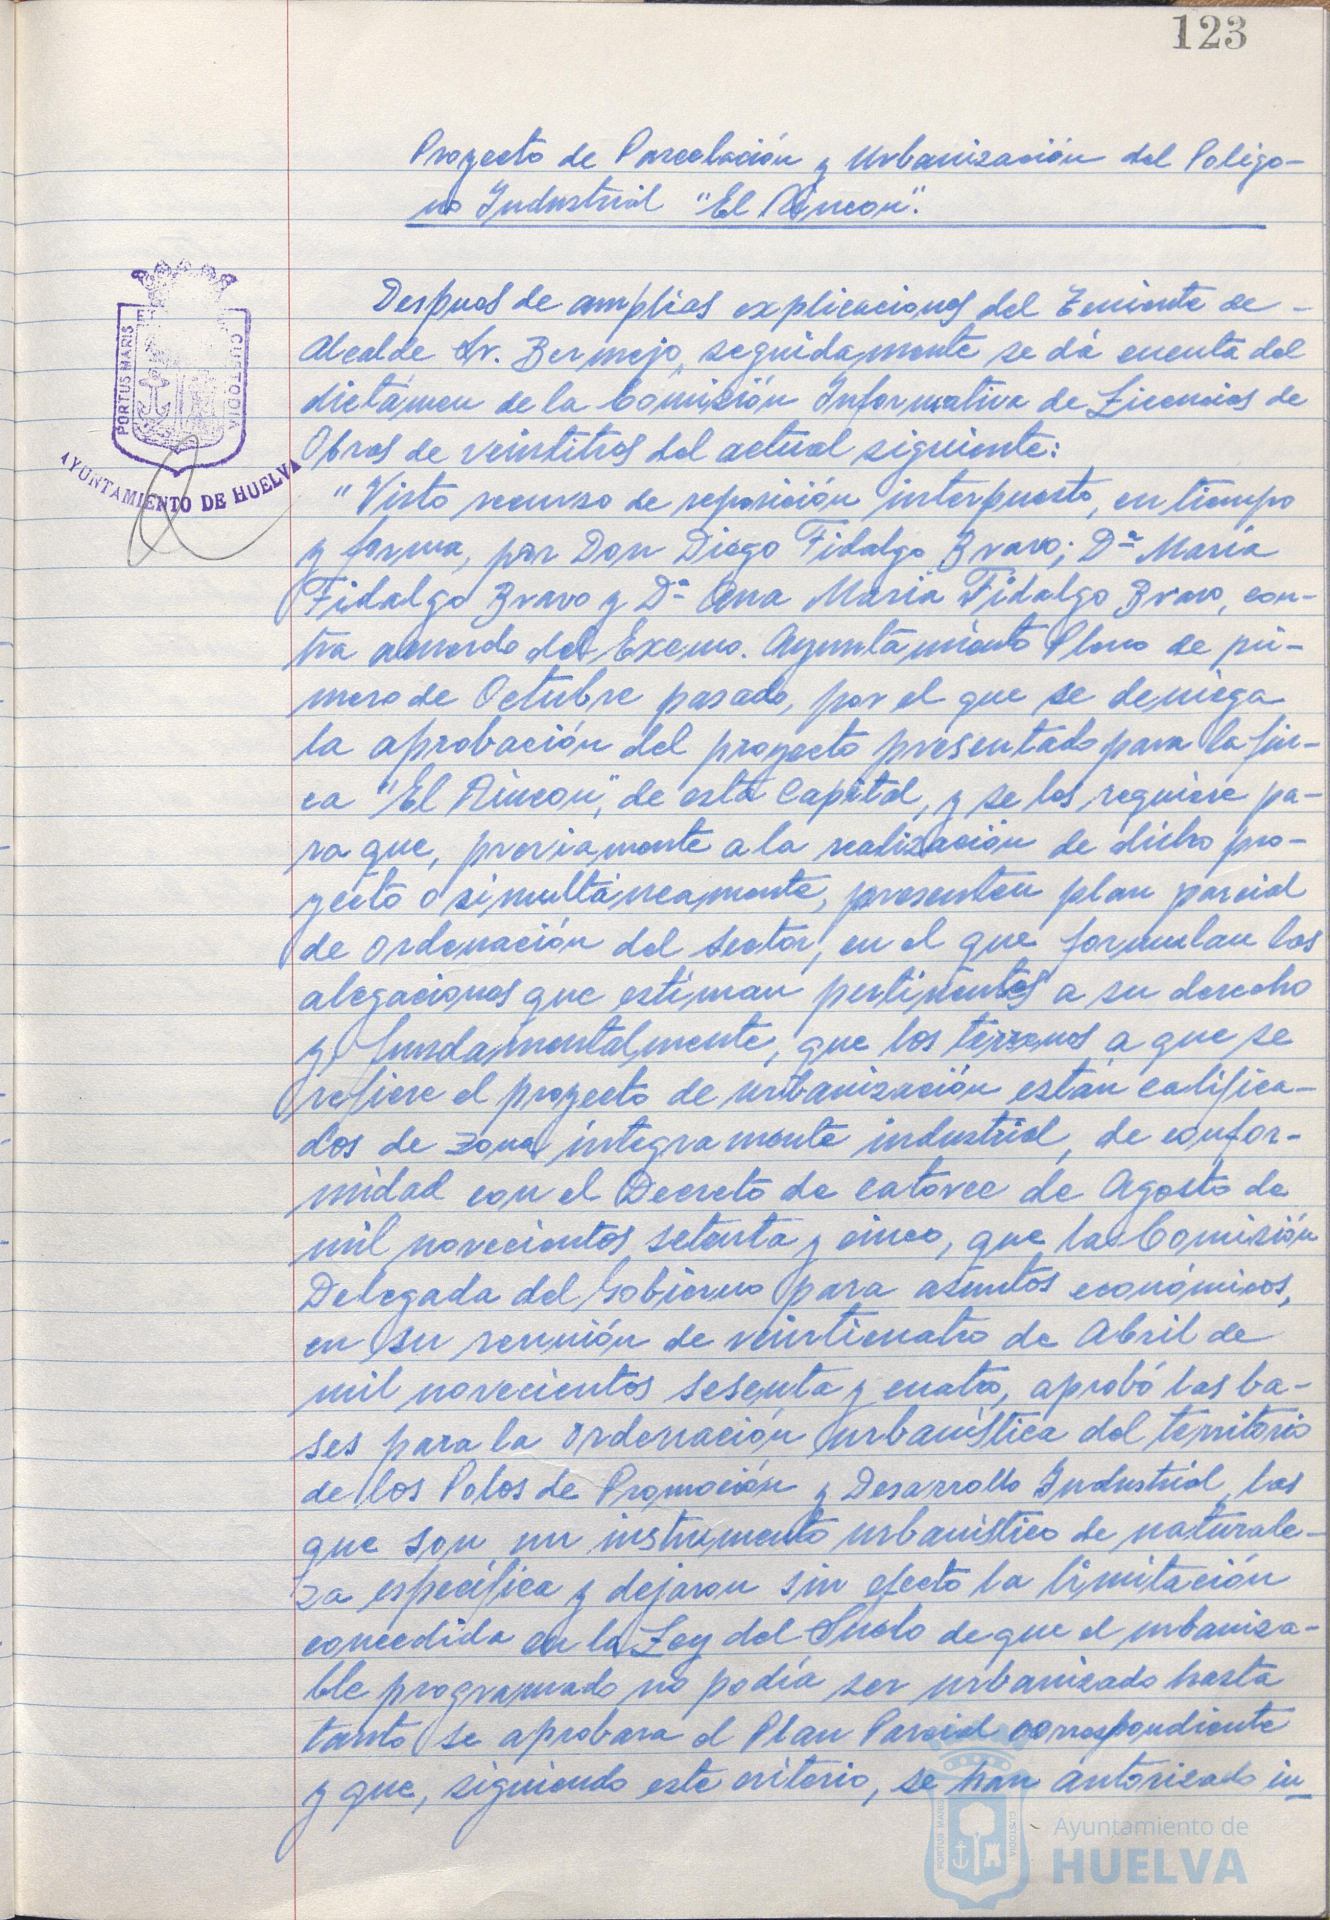 123
Proyecto de Parcelación y Urbanización del Polígo-
no Industrial "El Rincon".
Despues de amplias explicaciones del Teniente de -
Alcalde Sr. Bermejo, seguidamente se dá cuenta del
dictámen de la Comisión Informativa de Licencias de
Obras de veintitres del actual siguiente:
"Visto recurso de reposición interpuesto, en tiempo
y forma, por Don Diego Fidalgo Bravo; Dª María
Fidalgo Bravo y Dª Ana María Fidalgo Bravo, con-
tra acuerdo del Excmo. Ayuntamiento Pleno de pri-
mero de Octubre pasado, por el que se deniega
la aprobación del proyecto presentado para la fin-
ca "El Rincon", de esta Capital, y se les requiere pa-
ra que, previamente a la realización de dicho pro-
yecto o simultáneamente, presenten plan parcial
de ordenación del sector, en el que formulan las
alegaciones que estiman pertinentes a su derecho
y fundamentalmente, que los terrenos a que se
refiere el proyecto de urbanización están califica-
dos de zona íntegramente industrial, de confor-
midad con el Decreto de catorce de Agosto de
mil novecientos setenta y cinco, que la Comisión
Delegada del Gobierno para asuntos económicos,
en su reunión de veinticuatro de Abril de
mil novecientos sesenta y cuatro, aprobó las ba-
ses para la ordenación urbanística del territorio
de los Polos de Promoción y Desarrollo Industrial, las
que son un instrumento urbanístico de naturale-
za específica y dejaron sin efecto la limitación
concedida en la Ley del Suelo de que el urbaniza-
ble programado no podía ser urbanizado hasta
tanto se aprobara el Plan Parcial correspondiente
y que, siguiendo este criterio, se han autorizado in-
PORTUS MARIS
CUSTODIA
AYUNTAMIENTO DE HUELVA
PORTUS MARIS
CUSTODIA
Ayuntamiento de
HUELVA